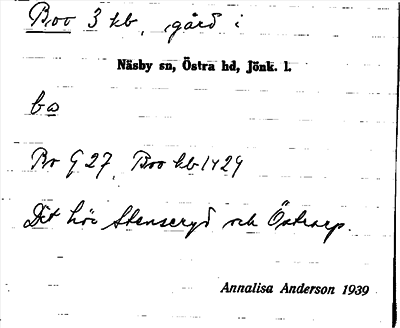 Boo 3 kb, gård i
Näsby sn, Östra hd, Jönk. l.
bo
Bo G 27, Boo kb 1424
Dit hör Stenseryd och Östrarp.
Annalisa Anderson 1939